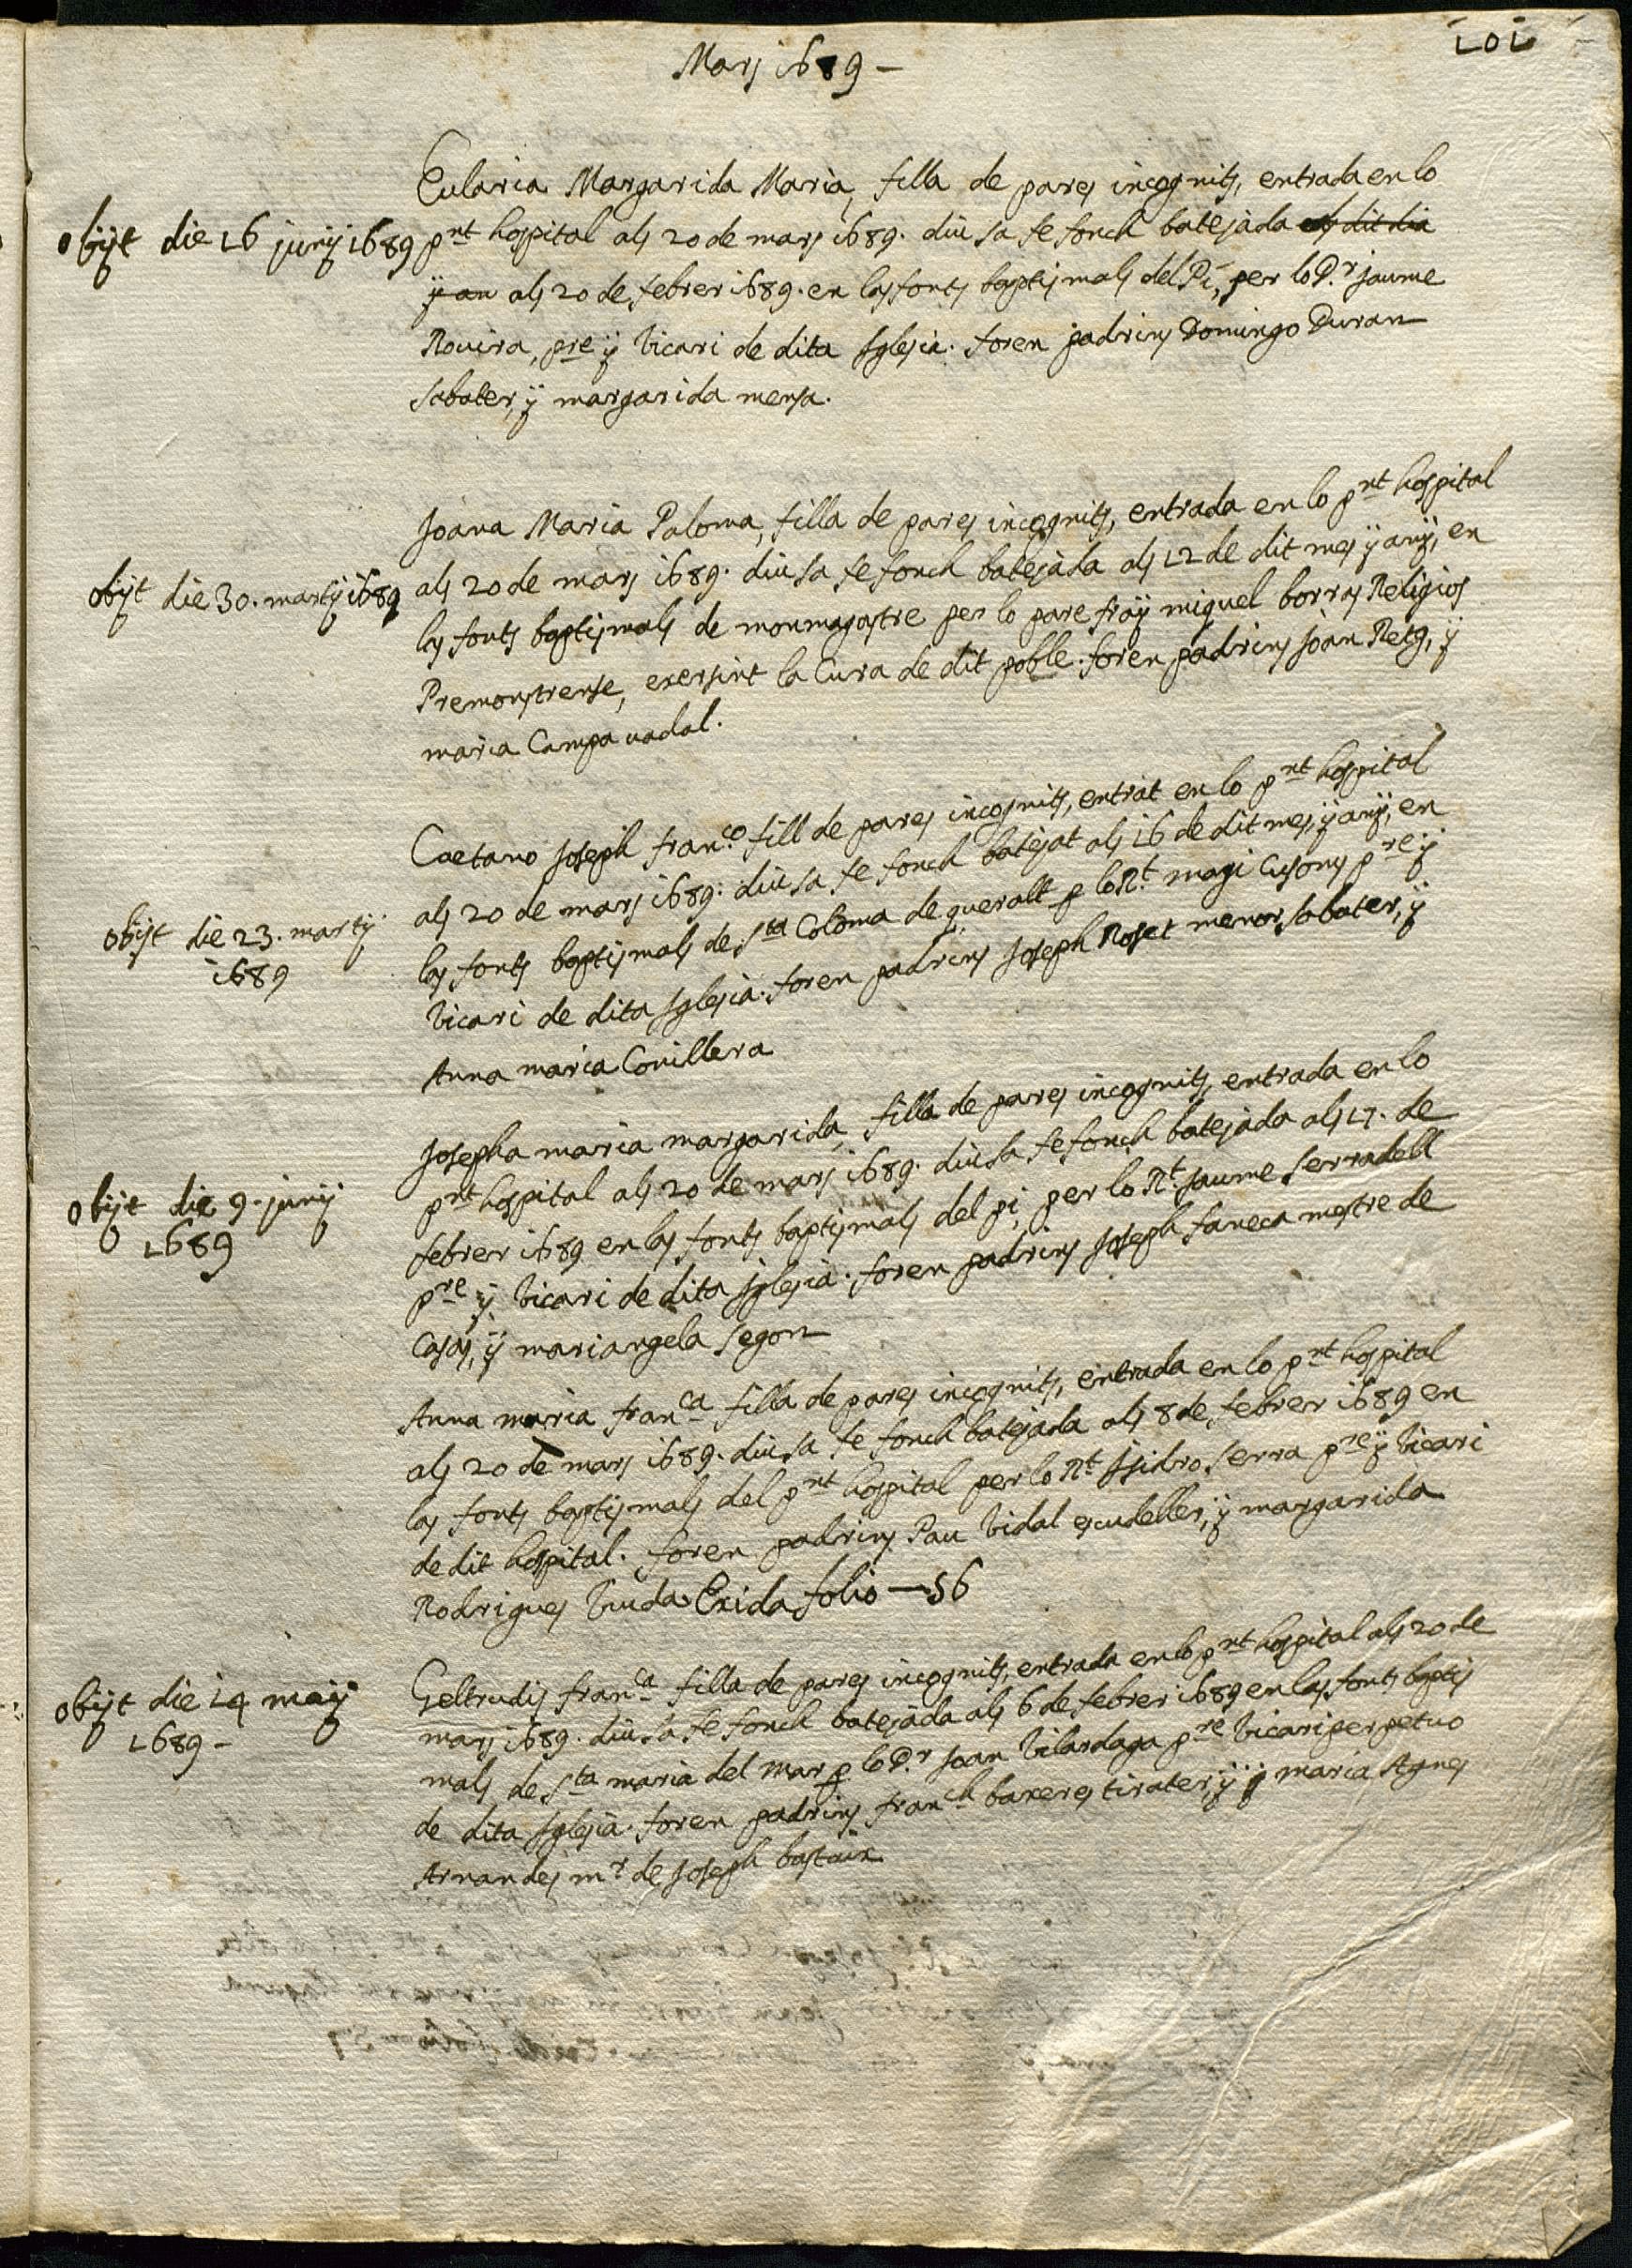 101
Mars 1689 –
Eularia Margarida Maria, filla de pares incognits, entrada en lo
obijt die 16 junij 1689
pnt hospital als 20 de mars 1689. diu sa fe fonch batejada als dit dia
y an als 20 de febrer 1689. en las fonts baptismals del Pi, per lo Dr. jaume
Rouira, pre ÿ Vicari de dita Iglesia. foren padrins Domingo Duran
sabater, ÿ margarida mensa.
Joana Maria Paloma, filla de pares incognits, entrada en lo pnt hospital
obijt die 30. martij 1689
als 20 de mars 1689. diu sa fe fonch batejada als 12 de dit mes ÿ anÿ, en
las fonts baptismals de monmagastre per lo pare fraÿ miquel borras Religios
Premonstrense, exersint la Cura de dit poble. foren padrins Joan Retg, ÿ
maria Campa uadal.
Caetano Joseph franco. fill de pares incognits, entrat en lo pnt hospital
obijt die 23. martij
1689
als 20 de mars 1689. diu sa fe fonch batejat als 16 de dit mes, ÿ anÿ, en
las fonts baptismals de Sta Coloma de queralt p lo Rt. magi Cusons pre ÿ
Vicari de dita Iglesia. foren padrins Joseph Roset menor, sabater, ÿ
Anna maria Conillera
Josepha maria margarida, filla de pares incognits, entrada en lo
obijt die 9. junij
1689
pnt hospital als 20 de mars 1689. diu sa fe fonch batejada als 17. de
febrer 1689 en las fonts baptismals del pi, per lo Rt. Jaume Serradell
pre ÿ Vicari de dita Iglesia. foren padrins Joseph faneca mestre de
Casas, ÿ mariangela Segon
Anna maria franca filla de pares incognits, entrada en lo pnt hospital
als 20 de mars 1689. diu sa fe fonch batejada als 8 de febrer 1689 en
las fonts baptismals del pnt hospital per lo Rt. Isidro Serra pre ÿ Vicari
de dit hospital. foren padrins Pau Vidal escudeller, ÿ margarida
Rodrigues Viuda Exida folio — 56
Geltrudis franca filla de pares incognits, entrada en lo pnt hospital als 20 de
obijt die 14 maij
1689 –
mars 1689. diu sa fe fonch batejada als 6 de febrer 1689 en las fonts baptis
mals de Sta maria del mar p lo Dr. Joan Vilardaga pre Vicari perpetuo
de dita Iglesia. foren padrins franch baxeres tirater, ÿ ÿ maria Agnes
Arnandes mr de Joseph bastaix